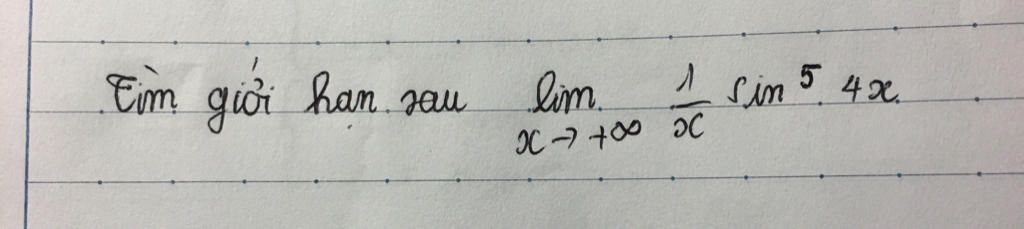 Tìm giới hạn sau lim x→+∞ 1/x sin⁵ 4x